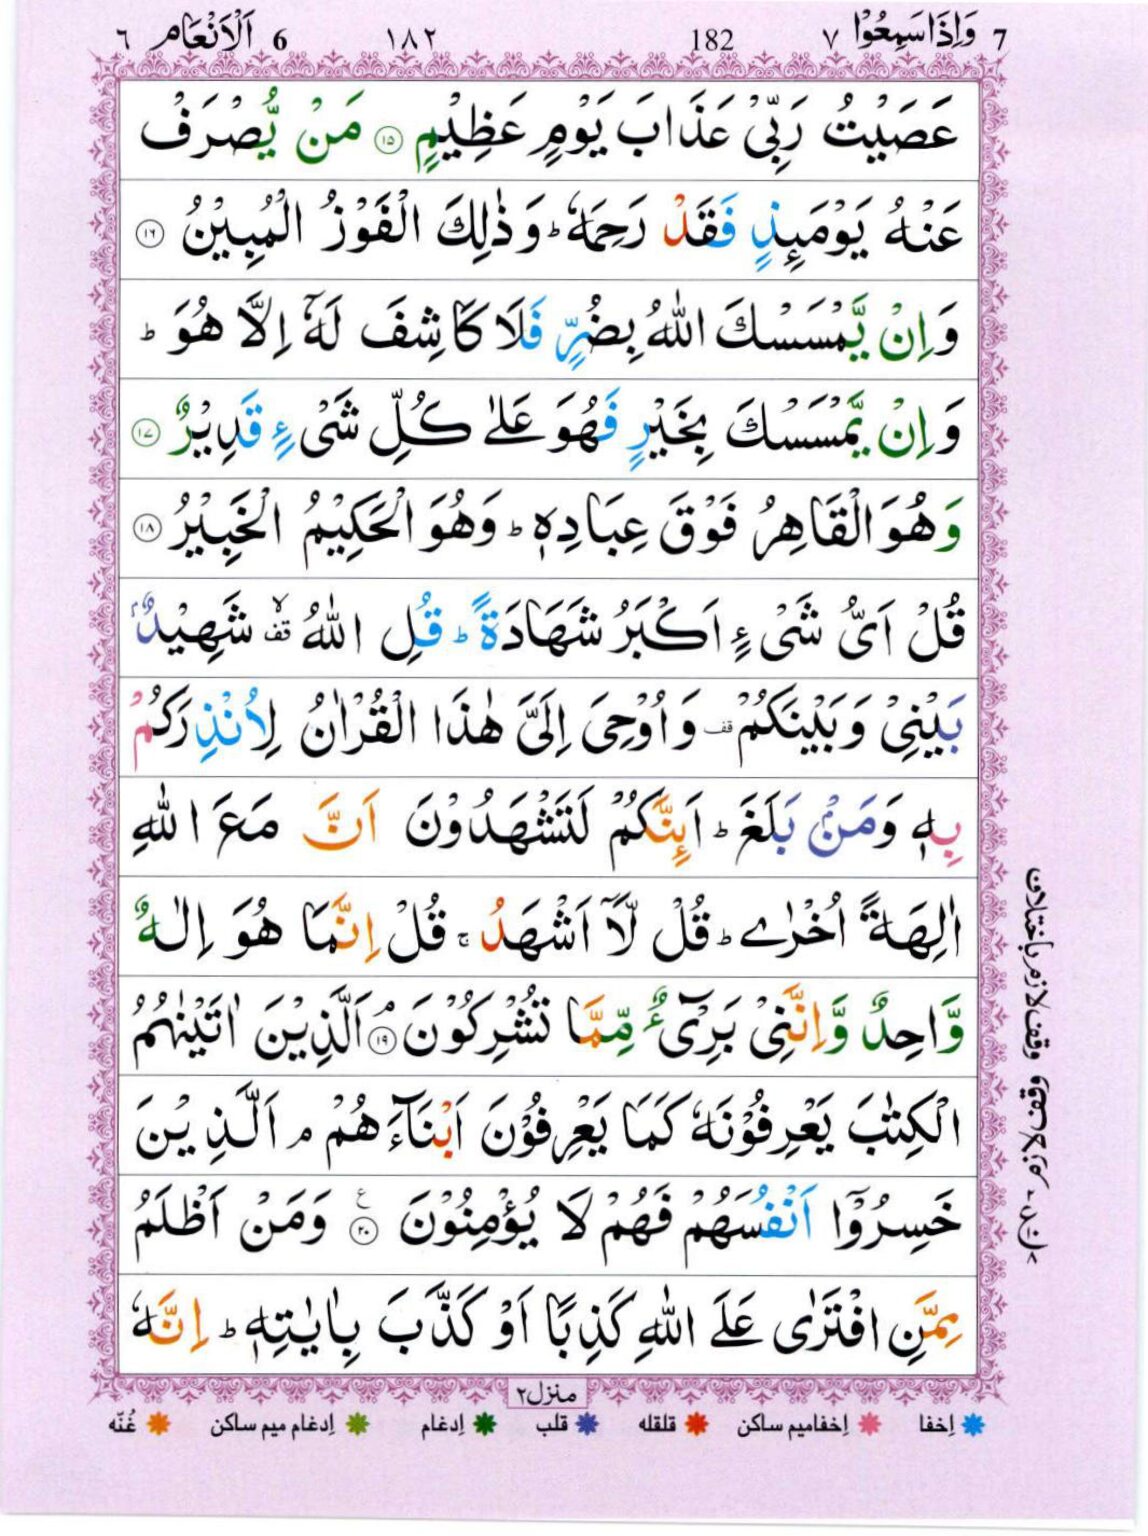 7 وَاِذَا سَمِعُوْا ٧ 182 ١٨٢ 6 اَلْاَنْعَام ٦
عَصَيْتُ رَبِّيْ عَذَابَ يَوْمٍ عَظِيْمٍ ١٥ مَنْ يُّصْرَفْ
عَنْهُ يَوْمَىِٕذٍ فَقَدْ رَحِمَهٗ ؕ وَذٰلِكَ الْفَوْزُ الْمُبِيْنُ ١٦
وَاِنْ يَّمْسَسْكَ اللّٰهُ بِضُرٍّ فَلَا كَاشِفَ لَهٗۤ اِلَّا هُوَ ؕ
وَاِنْ يَّمْسَسْكَ بِخَيْرٍ فَهُوَ عَلٰى كُلِّ شَيْءٍ قَدِيْرٌ ١٧
وَهُوَ الْقَاهِرُ فَوْقَ عِبَادِهٖ ؕ وَهُوَ الْحَكِيْمُ الْخَبِيْرُ ١٨
قُلْ اَيُّ شَيْءٍ اَكْبَرُ شَهَادَةً ؕ قُلِ اللّٰهُ ۙ قف شَهِيْدٌۢ
بَيْنِيْ وَبَيْنَكُمْ قف وَاُوْحِيَ اِلَيَّ هٰذَا الْقُرْاٰنُ لِاُنْذِرَكُمْ
بِهٖ وَمَنْۢ بَلَغَ ؕ اَىِٕنَّكُمْ لَتَشْهَدُوْنَ اَنَّ مَعَ اللّٰهِ
اٰلِهَةً اُخْرٰى ؕ قُلْ لَّاۤ اَشْهَدُ ۚ قُلْ اِنَّمَا هُوَ اِلٰهٌ
وَّاحِدٌ وَّاِنَّنِيْ بَرِيْٓءٌ مِّمَّا تُشْرِكُوْنَ ۘ ١٩ اَلَّذِيْنَ اٰتَيْنٰهُمُ
الْكِتٰبَ يَعْرِفُوْنَهٗ كَمَا يَعْرِفُوْنَ اَبْنَآءَهُمْ ۘ اَلَّذِيْنَ
خَسِرُوْۤا اَنْفُسَهُمْ فَهُمْ لَا يُؤْمِنُوْنَ ع ٢٠ وَمَنْ اَظْلَمُ
مِمَّنِ افْتَرٰى عَلَى اللّٰهِ كَذِبًا اَوْ كَذَّبَ بِاٰيٰتِهٖ ؕ اِنَّهٗ
منزل ٢
اِخفا اِخفامیم ساکن قلقله قلب اِدغام اِدغام میم ساکن غُنّه
وقف لازم باختلاف